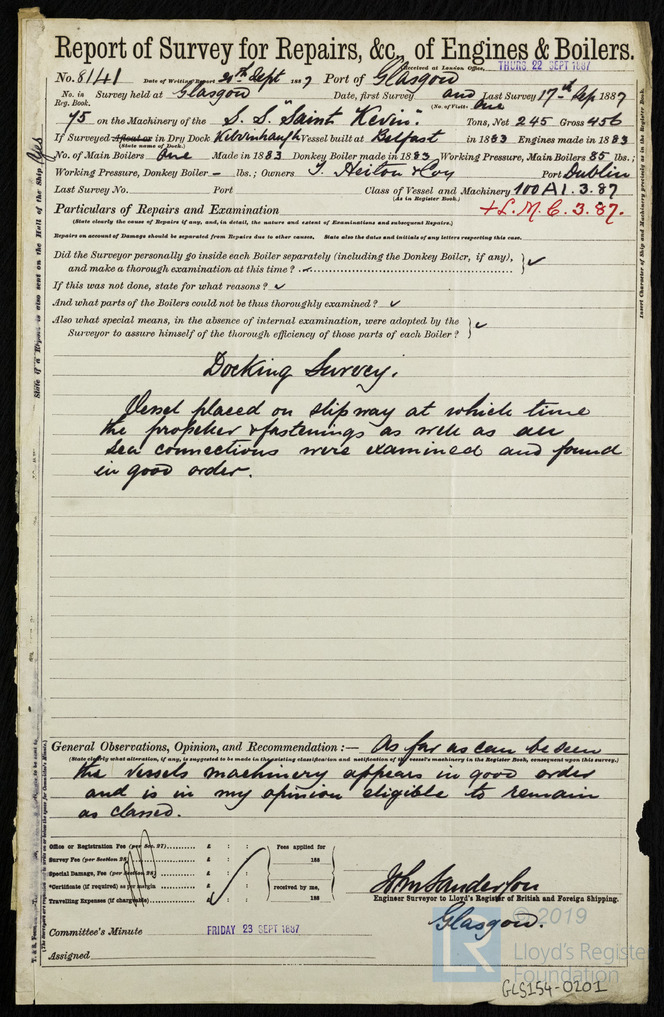 Report of Survey for Repairs, &c., of Engines & Boilers.
Received at London Office, THURS 22 SEPT 1887
No. 8141 Date of Writing Report 20th Sept 1887 Port of Glasgow
No. in Reg. Book. Survey held at Glasgow Date, first Survey and Last Survey 17th Sep 1887
(No. of Visits: One
75 on the Machinery of the S. S. "Saint Kevin". Tons, Net 245 Gross 456
If Surveyed Afloat or in Dry Dock Kelvinhaugh Vessel built at Belfast in 1883 Engines made in 1883
(State name of Dock.)
No. of Main Boilers One Made in 1883 Donkey Boiler made in 1883 Working Pressure, Main Boilers 85 lbs.;
Working Pressure, Donkey Boiler – lbs.; Owners T. Heiton & Coy Port Dublin
Last Survey No. Port Class of Vessel and Machinery 100A1. 3. 87
(As in Register Book.)
+L.M.C. 3. 87.
Particulars of Repairs and Examination
(State clearly the cause of Repairs if any, and, in detail, the nature and extent of Examinations and subsequent Repairs.)
Repairs on account of Damage should be separated from Repairs due to other causes. State also the dates and initials of any letters respecting this case.
Did the Surveyor personally go inside each Boiler separately (including the Donkey Boiler, if any),
and make a thorough examination at this time? ✓
If this was not done, state for what reasons? ✓
And what parts of the Boilers could not be thus thoroughly examined? ✓
Also what special means, in the absence of internal examination, were adopted by the
Surveyor to assure himself of the thorough efficiency of those parts of each Boiler? ✓
Docking Survey.
Vessel placed on slipway at which time
the propeller & fastenings as well as all
sea connections were examined and found
in good order.
General Observations, Opinion, and Recommendation:— As far as can be seen
(State clearly what alteration, if any, is suggested to be made in the existing classification and notification of the vessel's machinery in the Register Book, consequent upon this survey.)
the vessels machinery appears in good order
and is in my opinion eligible to remain
as classed.
Office or Registration Fee (per Sec. 27) £ : : Fees applied for
Survey Fee (per Section 28) £ : : 188
Special Damage, Fee (per Section 28) £ : :
*Certificate (if required) as per margin £ : : received by me,
Travelling Expenses (if chargeable) £ : : 188
John Sanderson
Engineer Surveyor to Lloyd's Register of British and Foreign Shipping.
Glasgow.
Committee's Minute FRIDAY 23 SEPT 1887
Assigned
State if a Report is also sent on the Hull of the Ship Yes
Insert Character of Ship and Machinery precisely as in the Register Book.
© 2019
LR
Lloyd's Register
Foundation
GLS154-0201